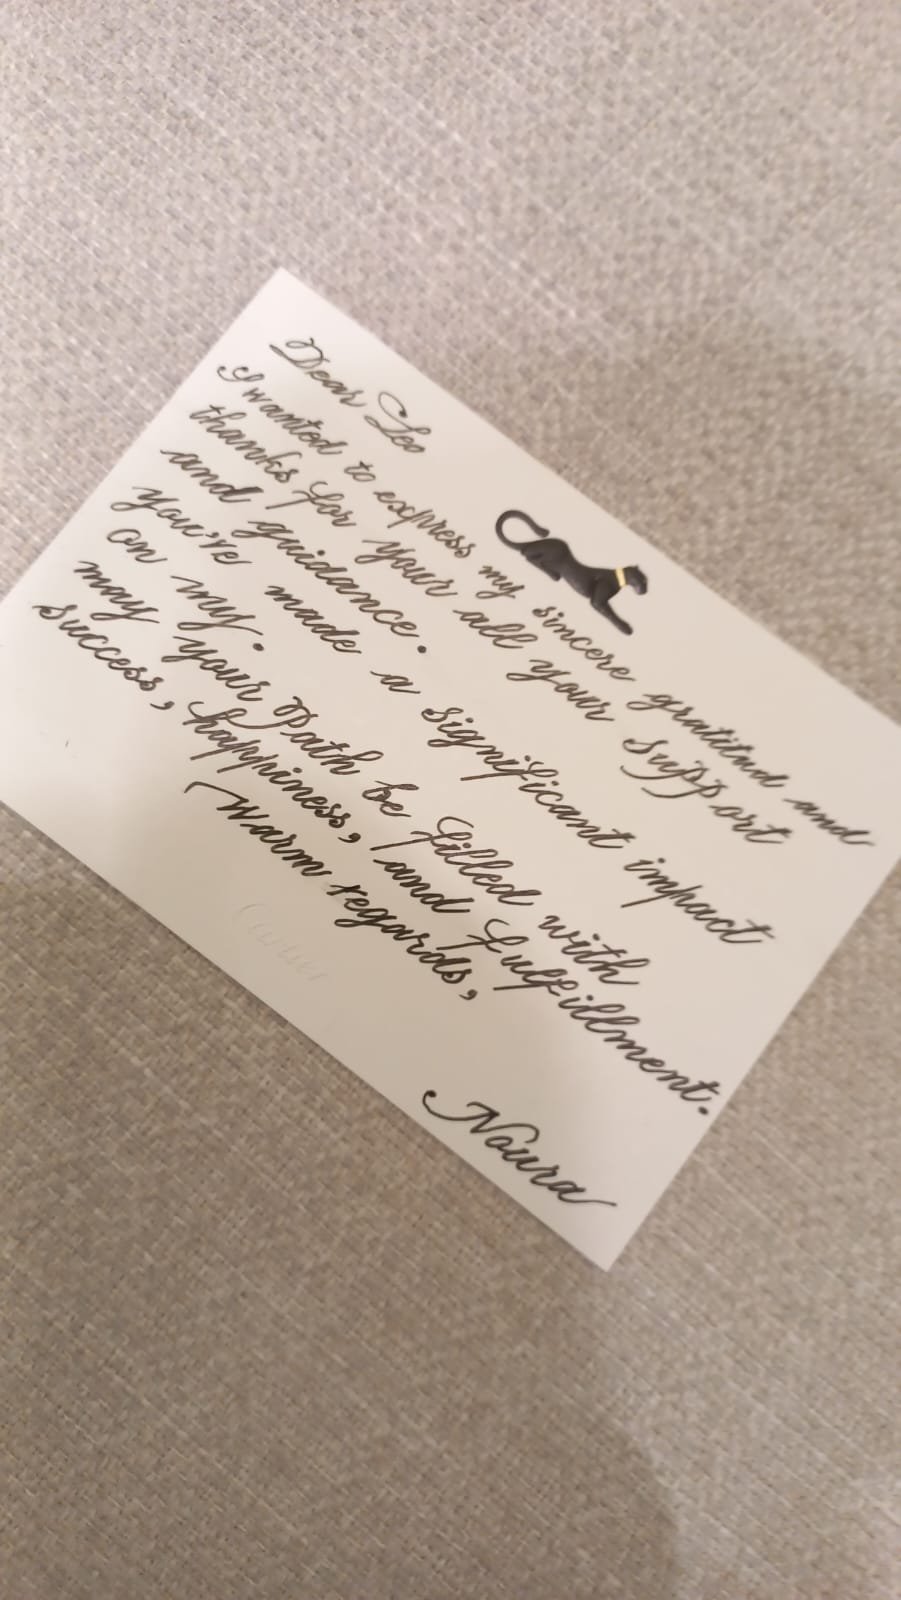 Dear Leo
I wanted to express my sincere gratitud and
thanks for your all your support
and guidance.
you've made a significant impact
on my.
may your Path be filled with
success, happiness, and fulfillment.
Warm regards,
Noura